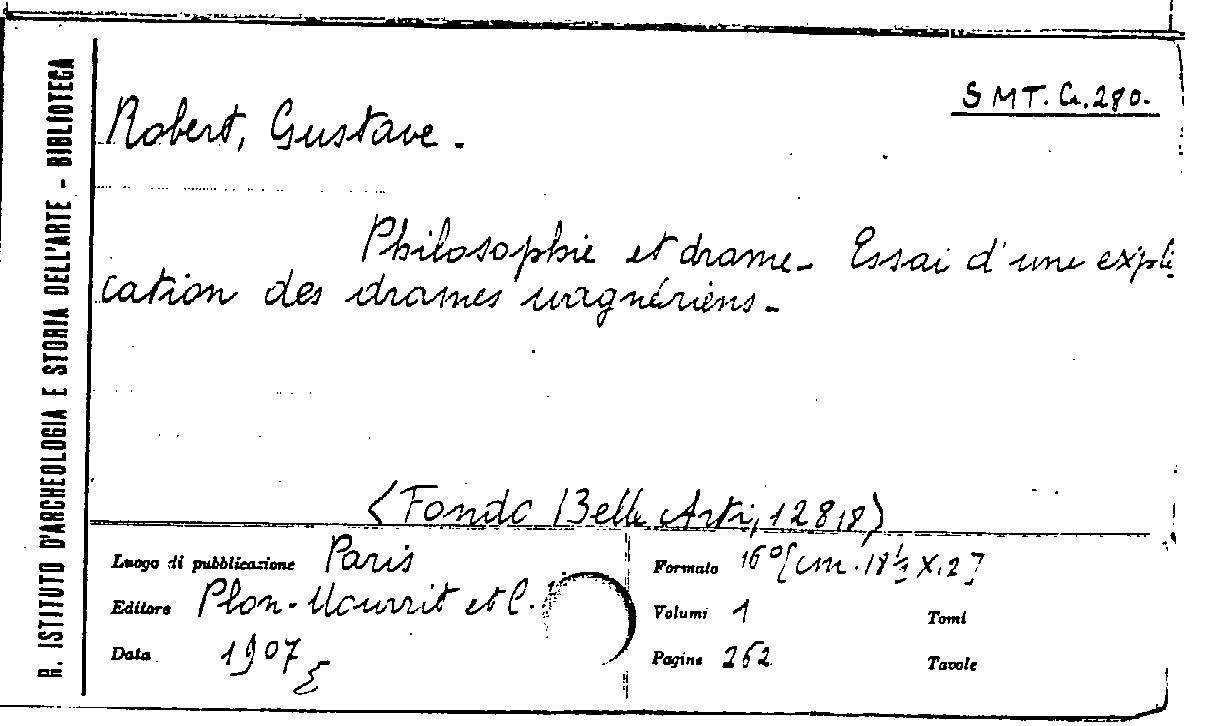 R. ISTITUTO D'ARCHEOLOGIA E STORIA DELL'ARTE - BIBLIOTECA
SMT. Cr. 280.
Robert, Gustave.
Philosophie et drame. Essai d'une expli
cation des drames wagnériens.
(Fondo Belle Arti, 12818)
Luogo di pubblicazione Paris
Editore Plon-Nourrit et C.
Data 1907
Formato 16º [cm. 18½ X 12]
Volumi 1 Tomi
Pagine 262 Tavole